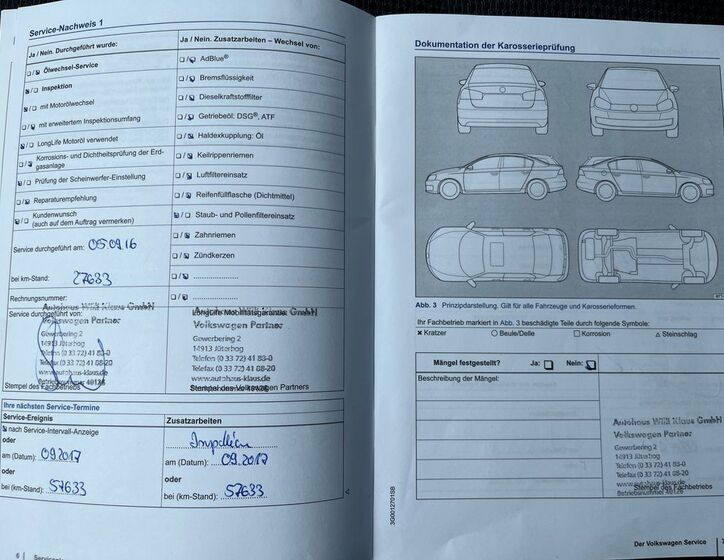 Service-Nachweis 1
Ja / Nein. Durchgeführt wurde:
Ölwechsel-Service
Inspektion
mit Motorölwechsel
mit erweitertem Inspektionsumfang
LongLife Motoröl verwendet
Korrosions- und Dichtheitsprüfung der Erd-
gasanlage
Prüfung der Scheinwerfer-Einstellung
Reparaturempfehlung
Kundenwunsch
(auch auf dem Auftrag vermerken)
Service durchgeführt am: 05.09.16
bei km-Stand: 27633
Rechnungsnummer:
Service durchgeführt von:
Autohaus Willi Klaus GmbH
Volkswagen Partner
Gewerbering 2
14913 Jüterbog
Telefon (0 33 72) 41 88-0
Telefax (0 33 72) 41 88-20
www.autohaus-klaus.de
Betriebsnummer 40128
Stempel des Fachbetriebs
Ja / Nein. Zusatzarbeiten – Wechsel von:
AdBlue®
Bremsflüssigkeit
Dieselkraftstofffilter
Getriebeöl: DSG®, ATF
Haldexkupplung: Öl
Keilrippenriemen
Luftfiltereinsatz
Reifenfüllflasche (Dichtmittel)
Staub- und Pollenfiltereinsatz
Zahnriemen
Zündkerzen
LongLife Mobilitätsgarantie
Autohaus Willi Klaus GmbH
Volkswagen Partner
Gewerbering 2
14913 Jüterbog
Telefon (0 33 72) 41 88-0
Telefax (0 33 72) 41 88-20
www.autohaus-klaus.de
Stempel des Volkswagen Partners
Ihre nächsten Service-Termine
Service-Ereignis
nach Service-Intervall-Anzeige
oder
am (Datum): 09.2017
oder
bei (km-Stand): 57633
Zusatzarbeiten
Inspektion
am (Datum): 09.2017
oder
bei (km-Stand): 57633
6
Dokumentation der Karosserieprüfung
Abb. 3 Prinzipdarstellung. Gilt für alle Fahrzeuge und Karosserieformen.
Ihr Fachbetrieb markiert in Abb. 3 beschädigte Teile durch folgende Symbole:
× Kratzer
○ Beule/Delle
□ Korrosion
△ Steinschlag
Mängel festgestellt? Ja: Nein:
Beschreibung der Mängel:
Autohaus Willi Klaus GmbH
Volkswagen Partner
Gewerbering 2
14913 Jüterbog
Telefon (0 33 72) 41 88-0
Telefax (0 33 72) 41 88-20
www.autohaus-klaus.de
Stempel des Fachbetriebs
Betriebsnummer 40128
3G0012701SB
Der Volkswagen Service